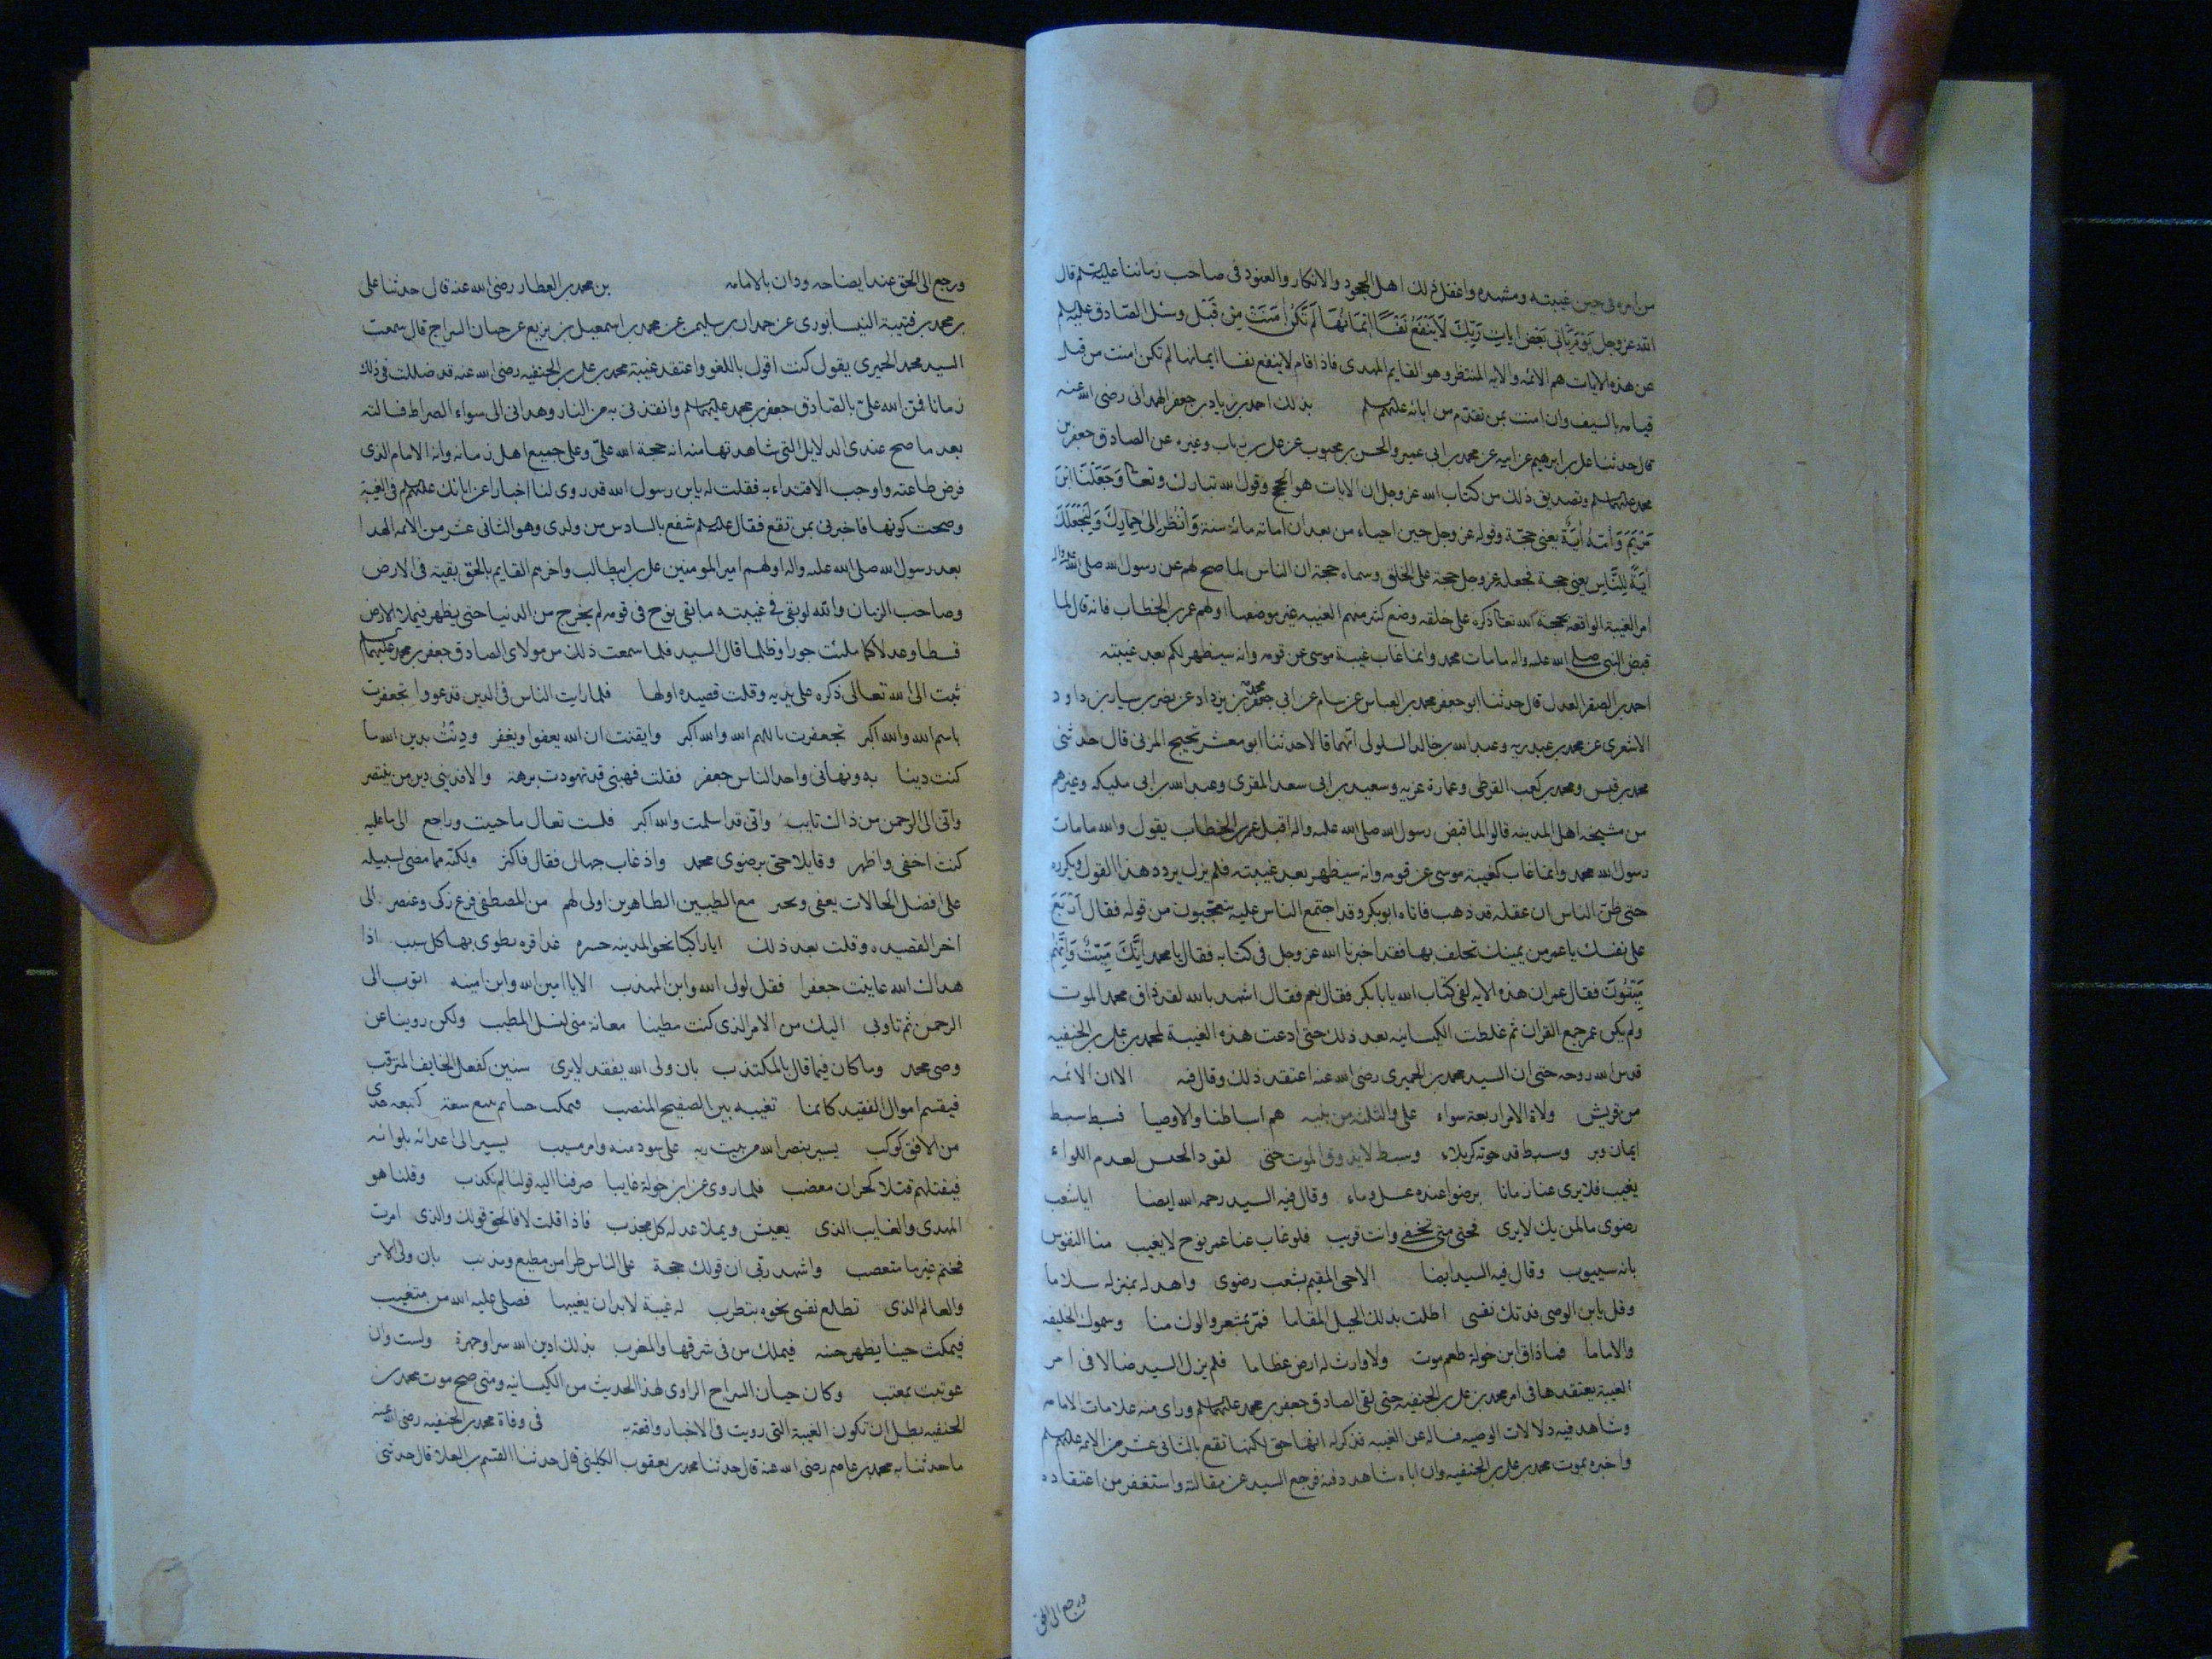 من امره في حين غيبته ومشهده واغفل ذلك اهل الجحود والانكار والعنود في صاحب زماننا عليه السلم قال
الله عز وجل يَوْمَ يَأتي بَعْضُ ايَاتِ رَبِّكَ لَا يَنْفَعُ نَفْسًا اِيْمَانُهَا لَمْ تَكُنْ اٰمَنَتْ مِنْ قَبْلُ وسئل الصادق عليه السلم
عن هذه الايات هم الائمه والايه المنتظر وهو القايم المهدى فاذا قام لا ينفع نفسا ايمانها لم تكن امنت من قبل
قيامه بالسيف وان امنت بمن تقدم من ابائه عليهم السلم بذلك احمد بن زياد بن جعفر الهمدانى رضى الله عنه
قال حدثنا على بن ابرهيم عن ابيه عن محمد بن ابى عمير والحسن بن محبوب عن على بن رياب وغيره عن الصادق جعفر بن
محمد عليهما السلم وتصديق ذلك من كتاب الله عز وجل ان الايات هو الحجج وقول الله تبارك وتعالى وَجَعَلْنَا ابْنَ
مَرْيَمَ وَاُمَّهُ اٰيَةً يعنى حجّة وقوله عز وجل حين احياه من بعد ان اماته مائة سنة وَانْظُرْ اِلىٰ حِمَارِكَ وَلِنَجْعَلَكَ
اٰيَةً لِلنَّاسِ يعنى حجة فجعله عز وجل حجة على الخلق وسماه حجة ان الناس لما صح لهم عن رسول الله صلى الله عليه واله
امر الغيبة الواقعة بحجة الله تعالى ذكره على خلقه وضع كثير منهم الغيبه غير موضعها اولهم عمر بن الخطاب فانه قال لما
قبض النبى صلى الله عليه واله ما مات محمد وانما غاب غيبة موسى عن قومه وانه سيظهر لكم بعد غيبته
احمد بن الصقر العدل قال حدثنا ابو جعفر محمد بن العباس بن بسام عن ابى جعفر محمد بن يزداد عن نصر بن سيار بن داود
الاشعرى عن محمد بن عبدربه وعبد الله بن خالد السلولى انهما قالا حدثنا ابو معشر نجيح المزنى قال حدثنى
محمد بن قيس ومحمد بن كعب القرظى وعمارة بن غزيه وسعيد بن ابى سعد المقرى وعبد الله بن ابى مليكه وغيرهم
من مشيخه اهل المدينه قالوا لما قبض رسول الله صلى الله عليه واله اقبل عمر بن الخطاب يقول والله ما مات
رسول الله محمد وانما غاب كغيبة موسى عن قومه وانه سيظهر بعد غيبته فلم يزل يردد هذا القول ويكرره
حتى ظن الناس ان عقله قد ذهب فاتاه ابو بكر وقد اجتمع الناس عليه يتعجبون من قوله فقال اَرْبَعْ
على نفسك يا عمر من يمينك تحلف بها فقد اخبرنا الله عز وجل فى كتابه فقال يا محمد اِنَّكَ مَيِّتٌ وَاِنَّهُمْ
مَيِّتُونَ فقال عمر ان هذه الايه لفى كتاب الله يا ابا بكر فقال نعم فقال اشهد بالله لقد ذاق محمد الموت
ولم يكن عمر جمع القران ثم غلطت الكيسانيه بعد ذلك حتى ادعت هذه الغيبة لمحمد بن على بن الحنفيه
قدس الله روحه حتى ان السيد محمد بن الحميرى رضى الله عنه اعتقد ذلك وقال فيه الا ان الائمه
من قريش ولاة الامر اربعة سواء على والثلثة من بنيه هم اسباطنا والاوصيا فسبط سبط
ايمان وبر وسبط قد حوته كربلاء وسبط لا يذوق الموت حتى يقود الجيش يقدم اللواء
يغيب فلا يرى عنا زمانا برضوا عنده عسل وماء وقال فيه السيد رحمه الله ايضا ايا شعب
رضوى ما لمن بك لا يرى فحتى متى تخفى وانت قريب فلو غاب عنا عمر نوح لايقنت منا النفوس
بانه سييوب وقال فيه السيد ايضا الا حى المقيم بشعب رضوى واهد له بمنزله سلاما
وقل يا بن الوصى فدتك نفسى اطلت بذلك الجبل المقاما فمر بمعشر والوك منا وسموك الخليفه
والاماما فما ذاق ابن خولة طعم موت ولا وارت له ارض عظاما فلم يزل السيد ضالا فى امر
الغيبة يعتقدها فى امر محمد بن على بن الحنفيه حتى لقى الصادق جعفر بن محمد عليهما السلم وراى منه علامات الامامه
وشاهد فيه دلالات الوصيه فساله عن الغيبه فذكر له انها حق لكنها تقع بالثانى عشر من الائمه عليهم السلم
واخبره بموت محمد بن على بن الحنفيه وان اباه شاهد دفنه فرجع السيد عن مقالته واستغفر من اعتقاده
ورجع الى الحق
ورجع الى الحق عند ايضاحه ودان بالامامه بن محمد بن العطار رضى الله عنه قال حدثنا على
بن محمد بن قتيبة النيسابورى عن حمدان بن سليمن عن محمد بن اسمعيل بن بزيع عن حيان السراج قال سمعت
السيد محمد الحميرى يقول كنت اقول باللغو واعتقد غيبة محمد بن على بن الحنفيه رضى الله عنه قد ضللت فى ذلك
زمانا فمن الله علىّ بالصادق جعفر بن محمد عليهما السلم وانقذنى به من النار وهدانى الى سواء الصراط فسالته
بعد ما صح عندى الدلايل التى شاهدتها منه انه حجة الله علىّ وعلى جميع اهل زمانه وانه الامام الذى
فرض طاعته واوجب الاقتداء به فقلت له يا بن رسول الله قد روى لنا اخبار عن ابائك عليهم السلم فى الغيبة
وصحت كونها فاخبرنى بمن تقع فقال عليه السلم شفع بالسادس من ولدى وهو الثانى عشر من الائمه الهدا
بعد رسول الله صلى الله عليه واله اولهم امير المومنين على بن ابيطالب واخرهم القايم بالحق بقية فى الارض
وصاحب الزمان والله لو بقى فى غيبته ما بقى نوح فى قومه لم يخرج من الدنيا حتى يظهر فيملا الارض
قسطا وعدلا كما ملئت جورا وظلما قال السيد فلما سمعت ذلك من مولاى الصادق جعفر بن محمد عليهما السلم
ثبت الى الله تعالى ذكره على يديه وقلت قصيده اولها فلما رايت الناس فى الدين قد غووا تجعفرت
باسم الله والله اكبر تجعفرت باللهم الله والله اكبر وايقنت ان الله يعفوا ويغفر ودِنْتُ بدين الله ما
كنت دينا به ونهانى واحد الناس جعفر فقلت فهبنى قد تهودت برهة والا فدينى دين من يتنصر
وانى الى الرحمن من ذاك تايب وانى قد اسلمت والله اكبر فلست تعال ما حيت وراجع الى ما عليه
كنت اخفى واظهر وقايلا حتى برضوى محمد واذ غاب جهال فقال فاكثر ولكنه مما مضى لسبيله
على افضل الحالات يعفى ويخبر مع الطيبين الطاهرين اولى لهم من المصطفى فرع زكى وعنصر الى
اخر القصيده وقلت بعد ذلك ايا راكبا نحو المدينه جسره غداقره يطوى بها كل سبب اذا
هداك الله عاينت جعفرا فقل لولى الله وابن المهذب الا يا امين الله وابن امينه اتوب الى
الرحمن ثم تاوبى اليك من الامر الذى كنت مطنبا معانة منى لنسل المطيب ولكن روينا عن
وصى محمد وما كان فيما قال بالمكتذب بان ولى الله يفقد لا يرى سنين كفعل الخايف المترقب
فيقسم اموال الفقيد كانما تغيبه بين الصفيح المنصب فيمكث حينا ثم ينبع نبعة كنبعة جدى
من الافق كوكب يسير بنصر الله من بيت ربه على سودد منه وامر مسبب يسير الى اعدائه بلوائه
فيقتلهم قتلا كحران مغضب فلما روى عن ابن خولة غايبا صرفنا اليه قولنا لم نكذب وقلنا هو
المهدى والغايب الذى يعيش ويملا عدله كل مجذب فاذا قلت لا فالحق قولك والذى امرت
فحتم غير ما متعصب واشهد ربى ان قولك حجة على الناس طرا من مطيع ومذنب بان ولى الامر
والعالم الذى تطلع نفسى نحوه بتطرب له غيبة لا بد ان يغيبها فصلى عليه الله من متغيب
فيمكث حينا يظهر حينه فيملك من فى شرقها والمغرب بذلك ادين الله سرا وجهرة ولست وان
عوتبت بمعتب وكان حيان السراج الراوى لهذا الحديث من الكيسانيه ومتى صح موت محمد بن
الحنفيه بطل ان تكون الغيبة التى رويت فى الاخبار واقعة به فى وفاة محمد بن الحنفيه رضى الله عنه
ما حدثنا به محمد بن عاصم رضى الله عنه قال حدثنا محمد بن يعقوب الكلينى قال حدثنا القسم بن العلا قال حدثنى